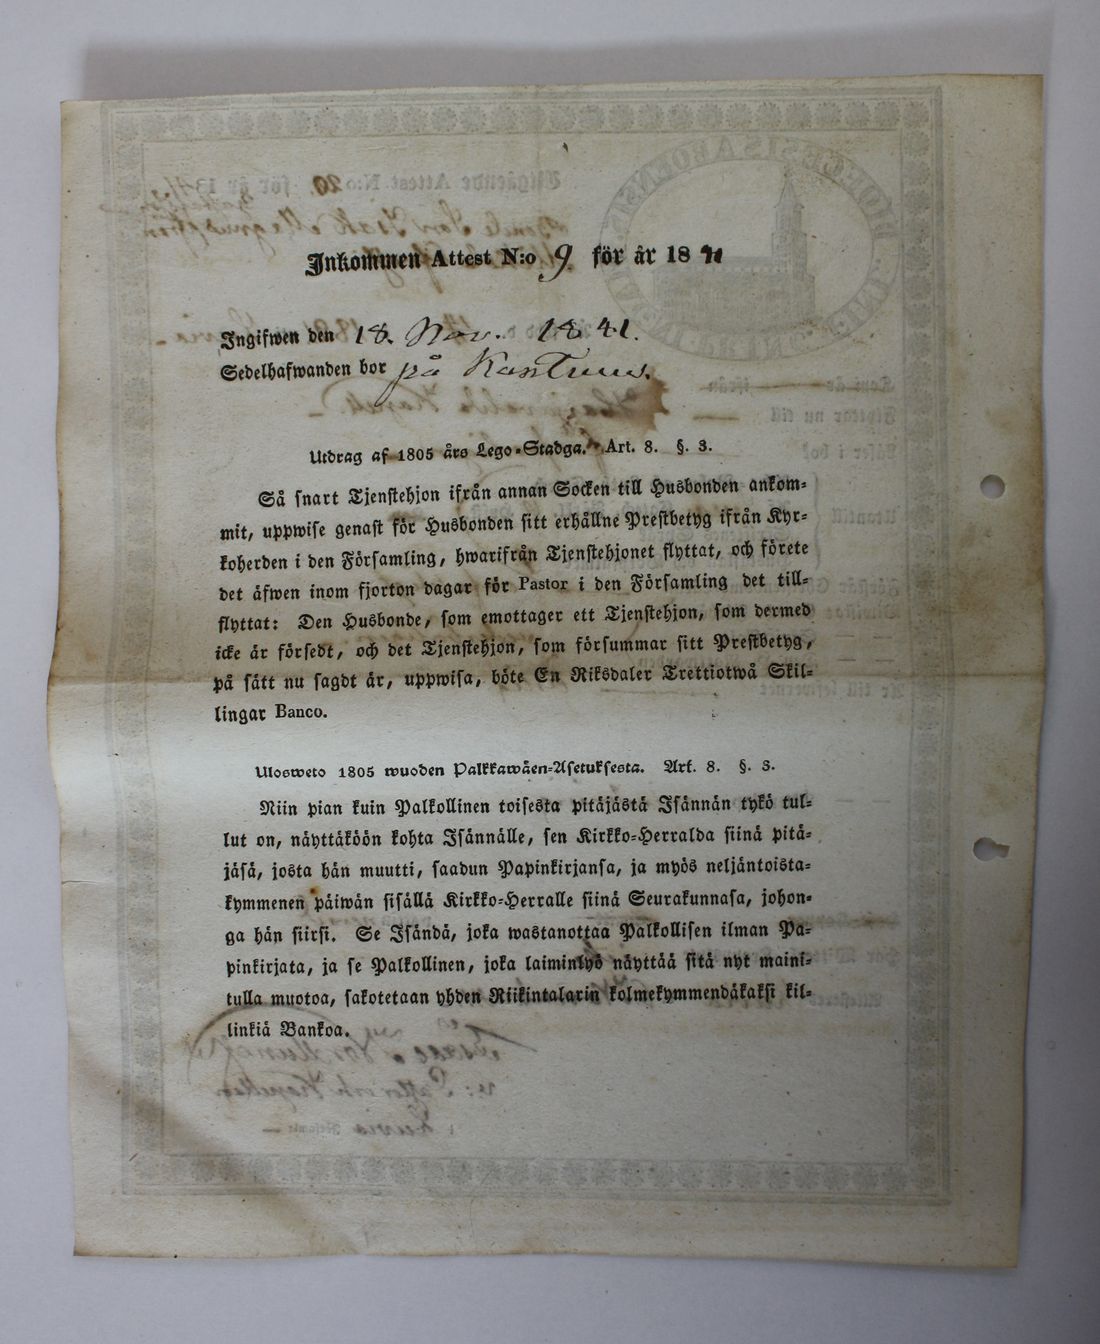 Inkommen Attest N:o 9 för år 1841
Ingifwen den 18. Nov. 1841.
Sedelhafwanden bor på
Utdrag af 1805 års Lego-Stadga. Art. 8. §. 3.
Så snart Tjenstehjon ifrån annan Socken till Husbonden ankom-
mit, uppwise genast för Husbonden sitt erhållne Prestbetyg ifrån Kyr-
koherden i den Församling, hwarifrån Tjenstehjonet flyttat, och förete
det äfwen inom fjorton dagar för Pastor i den Församling det till-
flyttat: Den Husbonde, som emottager ett Tjenstehjon, som dermed
icke är försedt, och det Tjenstehjon, som försummar sitt Prestbetyg,
på sätt nu sagdt är, uppwisa, böte En Riksdaler Trettiotwå Skil-
lingar Banco.
Ulosweto 1805 wuoden Palkkawäen-Asetuksesta. Art. 8. §. 3.
Niin pian kuin Palkollinen toisesta pitäjästä Isännän tykö tul-
lut on, näyttäköön kohta Isännälle, sen Kirkko-Herralda siinä pitä-
jäsä, josta hän muutti, saadun Papinkirjansa, ja myös neljäntoista-
kymmenen päiwän sisällä Kirkko-Herralle siinä Seurakunnasa, johon-
ga hän siirsi. Se Isändä, joka wastanottaa Palkollisen ilman Pa-
pinkirjata, ja se Palkollinen, joka laiminlyö näyttää sitä nyt maini-
tulla muotoa, sakotetaan yhden Riikintalarin kolmekymmendäkaksi kil-
linkiä Bankoa.